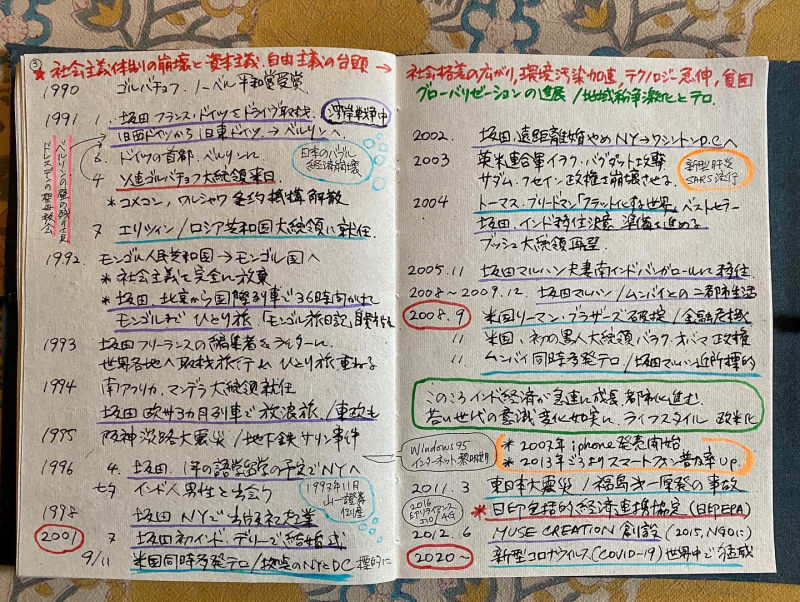 ③
★ 社会主義体制の崩壊と資本主義、自由主義の台頭 →
1990 ゴルバチョフ、ノーベル平和賞受賞
1991 1. 坂田 フランス・ドイツをドライヴ取材。 湾岸戦争中
旧西ドイツから旧東ドイツ。→ベルリンへ。
ベルリンの壁の残り
ドレスデンの聖母教会
6 ドイツの首都、ベルリンに。
日本のバブル経済崩壊
4 ソ連ゴルバチョフ大統領来日
* コメコン、ワルシャワ条約機構解散
7 エリツィン/ロシア共和国大統領に就任。
1992. モンゴル人民共和国 → モンゴル国へ
* 社会主義を完全に放棄
* 坂田、北京から国際列車で36時間かけて
モンゴルまで ひとり旅 「モンゴル旅日記」
1993 坂田フリーランスの編集者&ライターに。
世界各地へ取材旅行&ひとり旅重ねる
1994 南アフリカ、マンデラ大統領就任
坂田 欧州3カ月列車で放浪旅。/東欧も
1995 阪神淡路大震災/地下鉄サリン事件
Windows95
インターネット黎明期
1996 4. 坂田、1年の語学留学の予定でNYへ
七夕 インド人男性と出会う
1997年11月
山一證券
倒産
1998 坂田 NYで出版社起業
2001 7 坂田初インド。デリーで結婚式
9/11 米国同時多発テロ/拠点のNYとDC標的に
社会格差の広がり、環境汚染加速、テクノロジー急伸、貧困
グローバリゼーションの進展/地域紛争激化とテロ.
2002. 坂田、遠距離婚やめNY→ワシントンD.C.へ
2003 英米連合軍イラク・バグダッド攻撃
サダム・フセイン政権を崩壊させる.
新型肺炎
SARS流行
2004 トーマス・フリードマン「フラット化する世界」ベストセラー
坂田、インド移住決意 準備を進める
ブッシュ大統領再選
2005.11 坂田マルハン夫妻南インド・バンガロールに移住.
2008~2009.12. 坂田マルハン/ムンバイとの二都市生活
2008.9 米国リーマン・ブラザーズ破綻/金融危機
11 米国、初の黒人大統領バラク・オバマ政権
11 ムンバイ同時多発テロ/坂田マルハン近所標的
このころインド経済が急速に成長 都市化進む.
若い世代の意識、変化如実に。ライフスタイル 欧米化
* 2007年 iphone発売開始.
* 2013年ごろよりスマートフォン普及率up.
2011.3 東日本大震災/福島第一原発の事故
2016
リライアンス
JIO/4G
* 日印包括的経済連携協定(日印EPA)
2012.6 MUSE CREATION 創設(2015, NGOに)
2020~ 新型コロナウイルス(COVID-19)世界中で